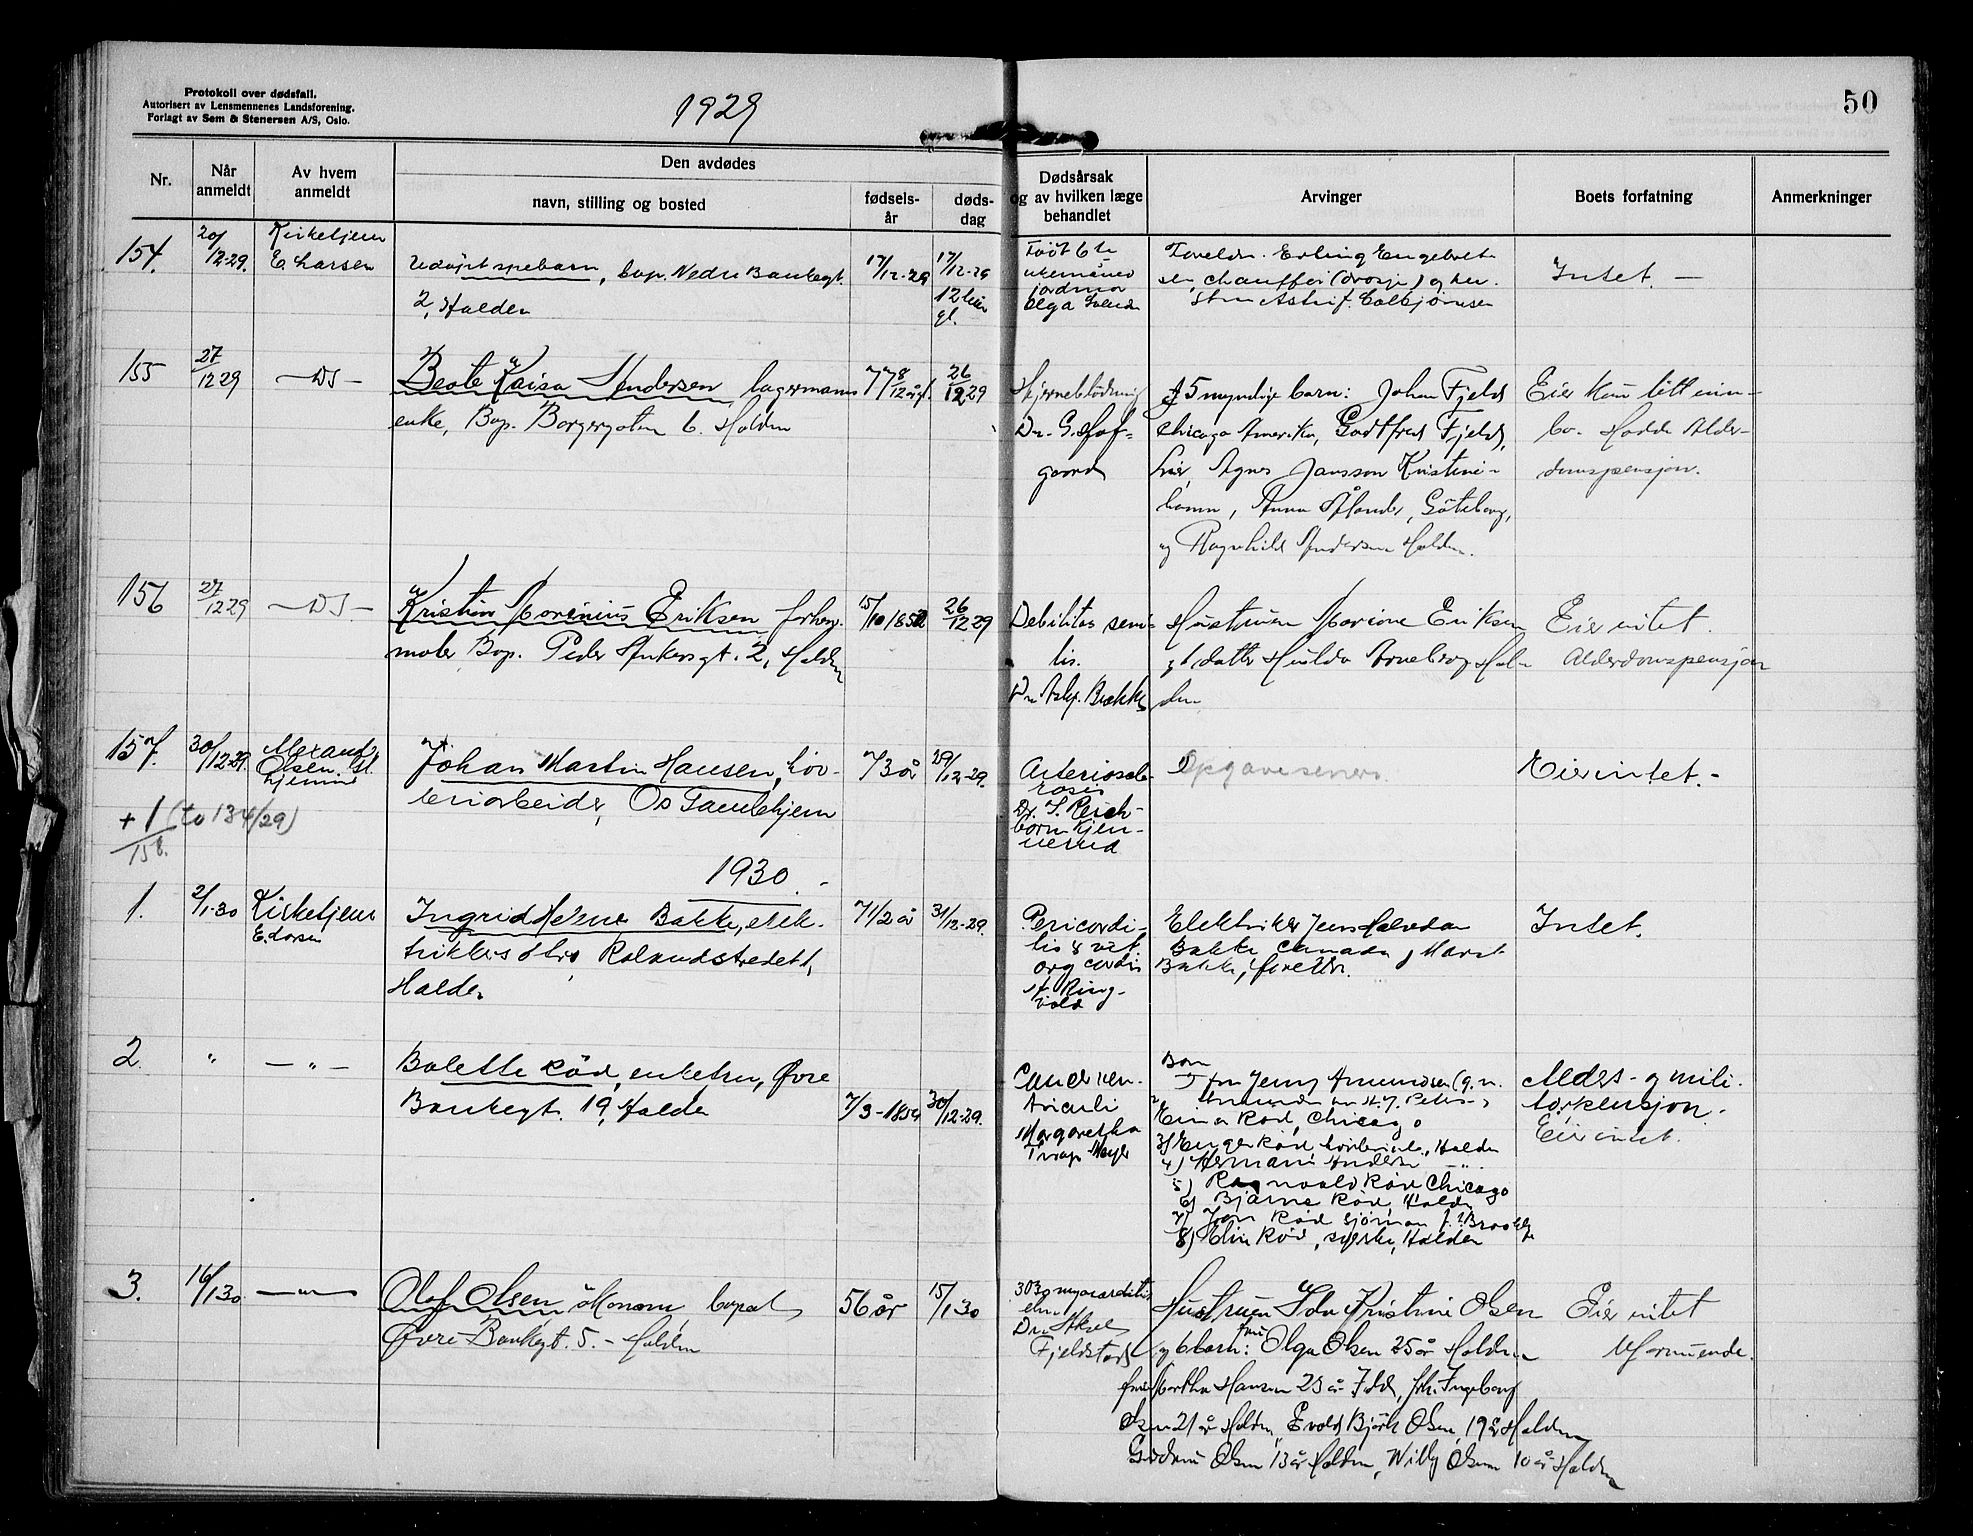 Protokoll over dødsfall.
Autorisert av Lensmennenes Landsforening.
Forlagt av Sem & Stenersen A/S, Oslo.
1929
50
Nr.
Når anmeldt
Av hvem anmeldt
Den avdødes
navn, stilling og bosted
fødsels-år
døds-dag
Dødsårsak og av hvilken læge behandlet
Arvinger
Boets forfatning
Anmerkninger
154.
20/12-29.
Kirketjener
E. Larsen
Udøpt spebarn, bop. Nedre Bankegt.
2, Halden
17/12-29
17/12-29
12 timer
gl.
Født 6te
jordmor
Olga
Foreldre. Erling Engebret-
sen, chauffør (drosje) og hu-
stru Astrid. Colbjørnsen
Intet. —
155
27/12 29
— Ds —
Beate Kaisa Andersen lagermanns
enke, Bop. Borgergaten 6. Halden
77 8/12 år gl.
26/12 29
Hjerneblødning
Dr. G. Hof-
gaard
5 myndige barn: Johan Fjeld
Chicago Amerika, Godtfred Fjeld,
her, Agnes Jansson Kristine-
hamn, Anna Ålander, Göteborg,
og Ragnhild Andersen Halden.
Eier kun litt inn-
bo. Hadde Alder-
domspensjon.
156
27/12 29
— Ds —
Kristian Severinius Eriksen forhenv.
maler Bop. Peder Ankersgt. 2, Halden
15/10 1852
26/12 29
Debilitas seni-
lis.
Dr. Asbj. Bække
Hustruen Mariane Eriksen
og 1 datter Hulda Arneberg Hal-
den
Eier intet.
Alderdomspensjon
157.
30/12-29.
Alexand
Olsen.
hjemme
Johan Martin Hansen, høv-
leriarbeider, Os Gamlehjem
73 år
29/12-29.
Arterioscle-
rosis
Dr. I. Reich-
born Kjen-
nerud
Opgave senere.
Eier intet. -
+ 1 (to 134/29)
158.
1930. -
1.
2/1-30
Kirketjener
E. Larsen
Ingrid Helene Bakke, elek-
trikkers dtr. Rolandstredet 1,
Halden
7 1/2 år
31/12-29.
Pericardi-
tis & vit.
org cordis
Ring-
vold
Elektriker Jens Halvdan
Bakke, Canada, Marit
Bakke, foreldre.
Intet.
2.
"
— " —
Bolette Rød, enkefru, Øvre
Bankegt. 19, Halden
7/3-1859
30/12-29.
Cancer ven-
triculi
Margaretha
Trap Meyer
Barn
1) fru Jenny Amundsen (g. m.
2) Einar Rød, Chicago
3) Halden
4) Herman Andersen — " —
5) Ragnvald Rød Chicago
6) Bjarne Rød, Halden
7) Jon Rød sjømann f. t. Brooklyn
8) Elin Rød, syerske, Halden
Alders- og mili-
tærpensjon.
Eier intet.
3.
16/1 30.
— " —
Olaf Olsen, økonom, bopæl
Øvre Bankegt. 5. - Halden
56 år
15/1 30
3030 myocarditis
chr.
Dr. Aksel
Fjeldstad
Hustruen Ida Kristine Olsen
og 6 barn: fru Olga Olsen 25 år Halden
fru Martha Hansen 23 år Idd, frk. Ingeborg
Olsen 21 år Halden, Evald Bjørk Olsen, 19 år Halden
Gudrun Olsen 13 år Halden, Willy Olsen 10 år Halden
Eier intet
Uformuende.